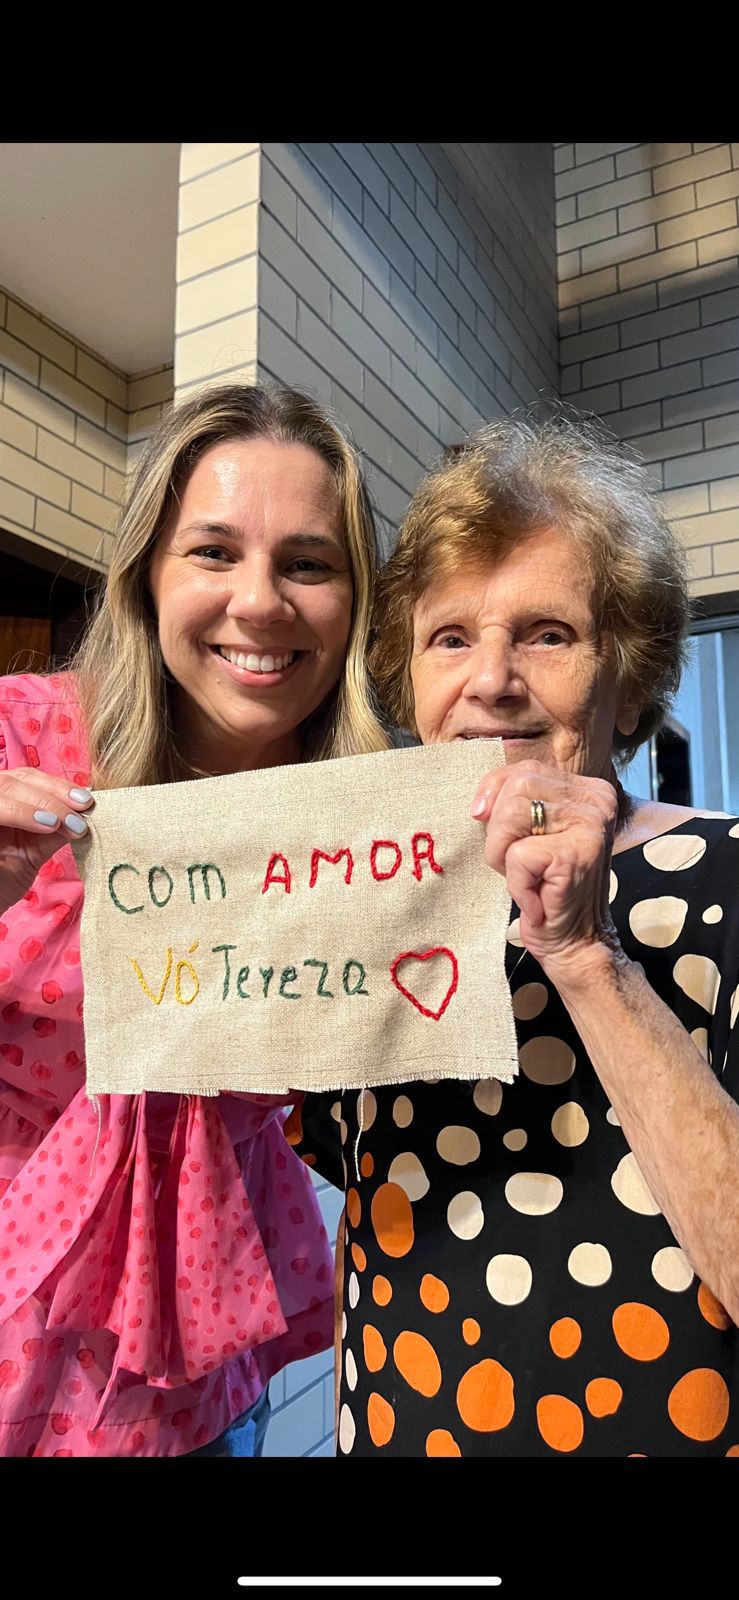 COM AMOR
Vó Tereza